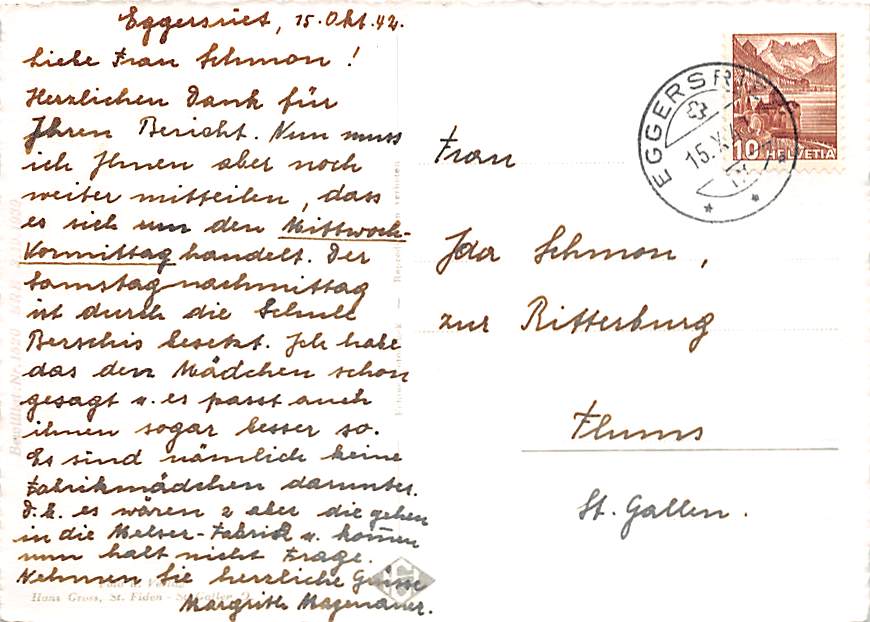 Eggersriet, 15. Okt. 42.
Liebe Frau Schmon!
Herzlichen Dank für
Ihren Bericht. Nun muss
ich Ihnen aber noch
weiter mitteilen, dass
es sich um den Mittwoch-
Vormittag handelt. Der
Samstagnachmittag
ist durch die Schule
Berschis besetzt. Ich habe
das den Mädchen schon
gesagt u. es passt auch
ihnen sogar besser so.
Es sind nämlich keine
Fabrikmädchen darunter.
D.h. es wären 2 aber die gehen
in die Melser-Fabrik u. kom̅en
nun halt nicht Frage.
Nehmen Sie herzliche Grüsse
Margrith Magendauer.
Hans Gross, St. Fiden - St. Gallen
EGGERSRIET
15.X.42
10 HELVETIA
Frau
Ida Schmon,
zur Ritterburg
Flums
St. Gallen.